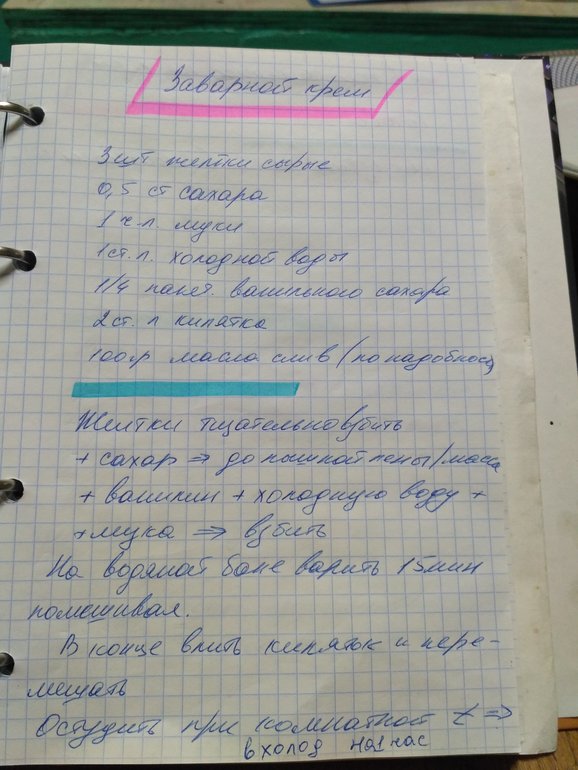 Заварной крем
3 шт желтки сырые
0,5 ст сахара
1 ч.л. муки
1 ст. л. холодной воды
1/4 пакет. ванильного сахара
2 ст. л кипятка
100 гр масла слив (по надобности)
Желтки тщательно взбить
+ сахар ⇒ до пышной пены/масса
+ ванилин + холодную воду +
+ мука ⇒ взбить
На водяной бане варить 15 мин
помешивая.
В конце влить кипяток и пере-
мешать
Остудить при комнатной t ⇒
в холод на 1 час